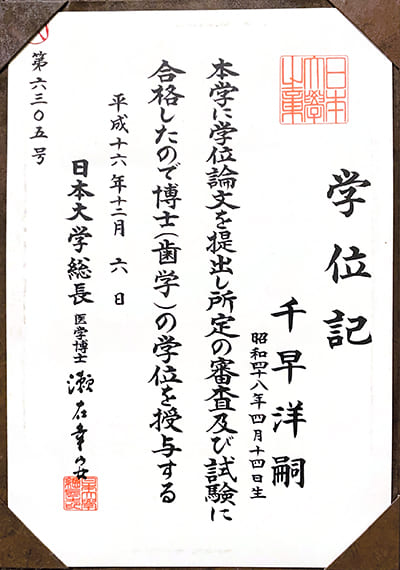 学位記
千早洋嗣
昭和四十八年四月十四日生
本学に学位論文を提出し所定の審査及び試験に
合格したので博士(歯学)の学位を授与する
平成十六年十二月 六 日
日本大学総長 医学博士 瀬在幸安
第六三〇五号
日本大學之章